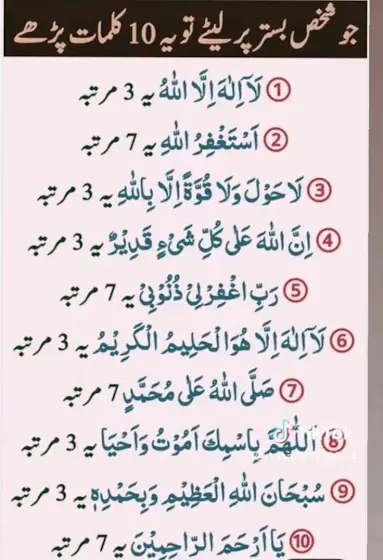 جو شخص بستر پر لیٹے تو یہ 10 کلمات پڑھے
① لَآ اِلٰهَ اِلَّا اللّٰهُ یہ 3 مرتبہ
② اَسْتَغْفِرُ اللّٰهِ یہ 7 مرتبہ
③ لَا حَوْلَ وَلَا قُوَّةً اِلَّا بِاللّٰهِ یہ 3 مرتبہ
④ اِنَّ اللّٰهَ عَلٰى كُلِّ شَیْءٍ قَدِیْرٌ یہ 3 مرتبہ
⑤ رَبِّ اغْفِرْلِیْ ذُنُوْبِیْ یہ 7 مرتبہ
⑥ لَآ اِلٰهَ اِلَّا هُوَ الْحَلِیمُ الْكَرِیْمُ یہ 3 مرتبہ
⑦ صَلَّى اللّٰهُ عَلٰى مُحَمَّدٍ 7 مرتبہ
⑧ اَللّٰهُمَّ بِاسْمِكَ اَمُوْتُ وَاَحْیَا یہ 3 مرتبہ
⑨ سُبْحَانَ اللّٰهِ الْعَظِیْمِ وَبِحَمْدِهٖ یہ 3 مرتبہ
⑩ یَا اَرْحَمَ الرَّاحِمِیْنَ یہ 7 مرتبہ